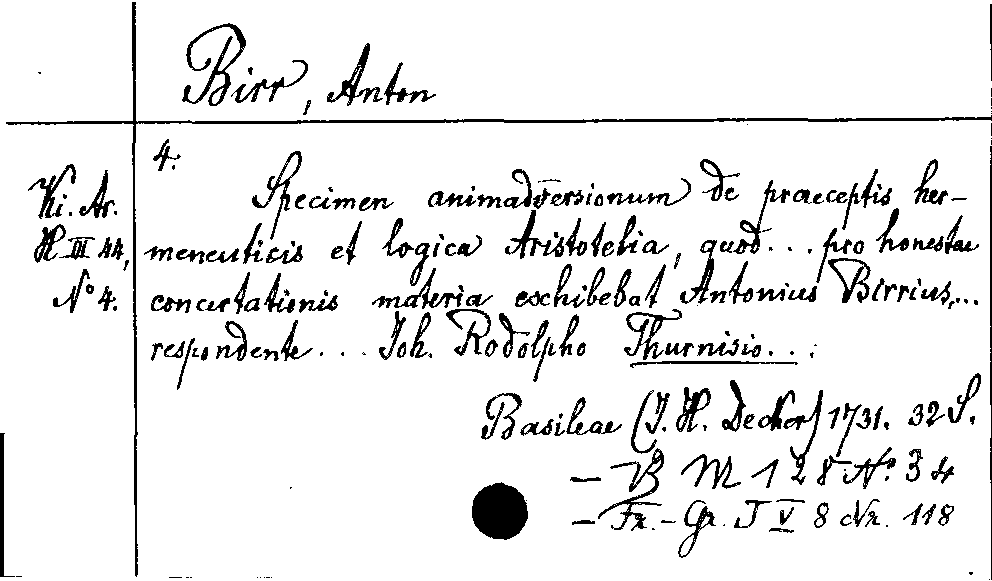 Birr, Anton
4.
Ki. Ar.
H III 44,
No 4.
Specimen animadversionum de praeceptis her-
meneuticis et logica Aristotelia, quod... pro honestae
concertationis materia exchibebat Antonius Birrius,...
respondente... Joh. Rodolpho Thurnisio...:
Basileae (J. H. Decker) 1731. 32 S.
– B M 128 No. 34
– Fr.-Gr. J V 8 Nr. 118